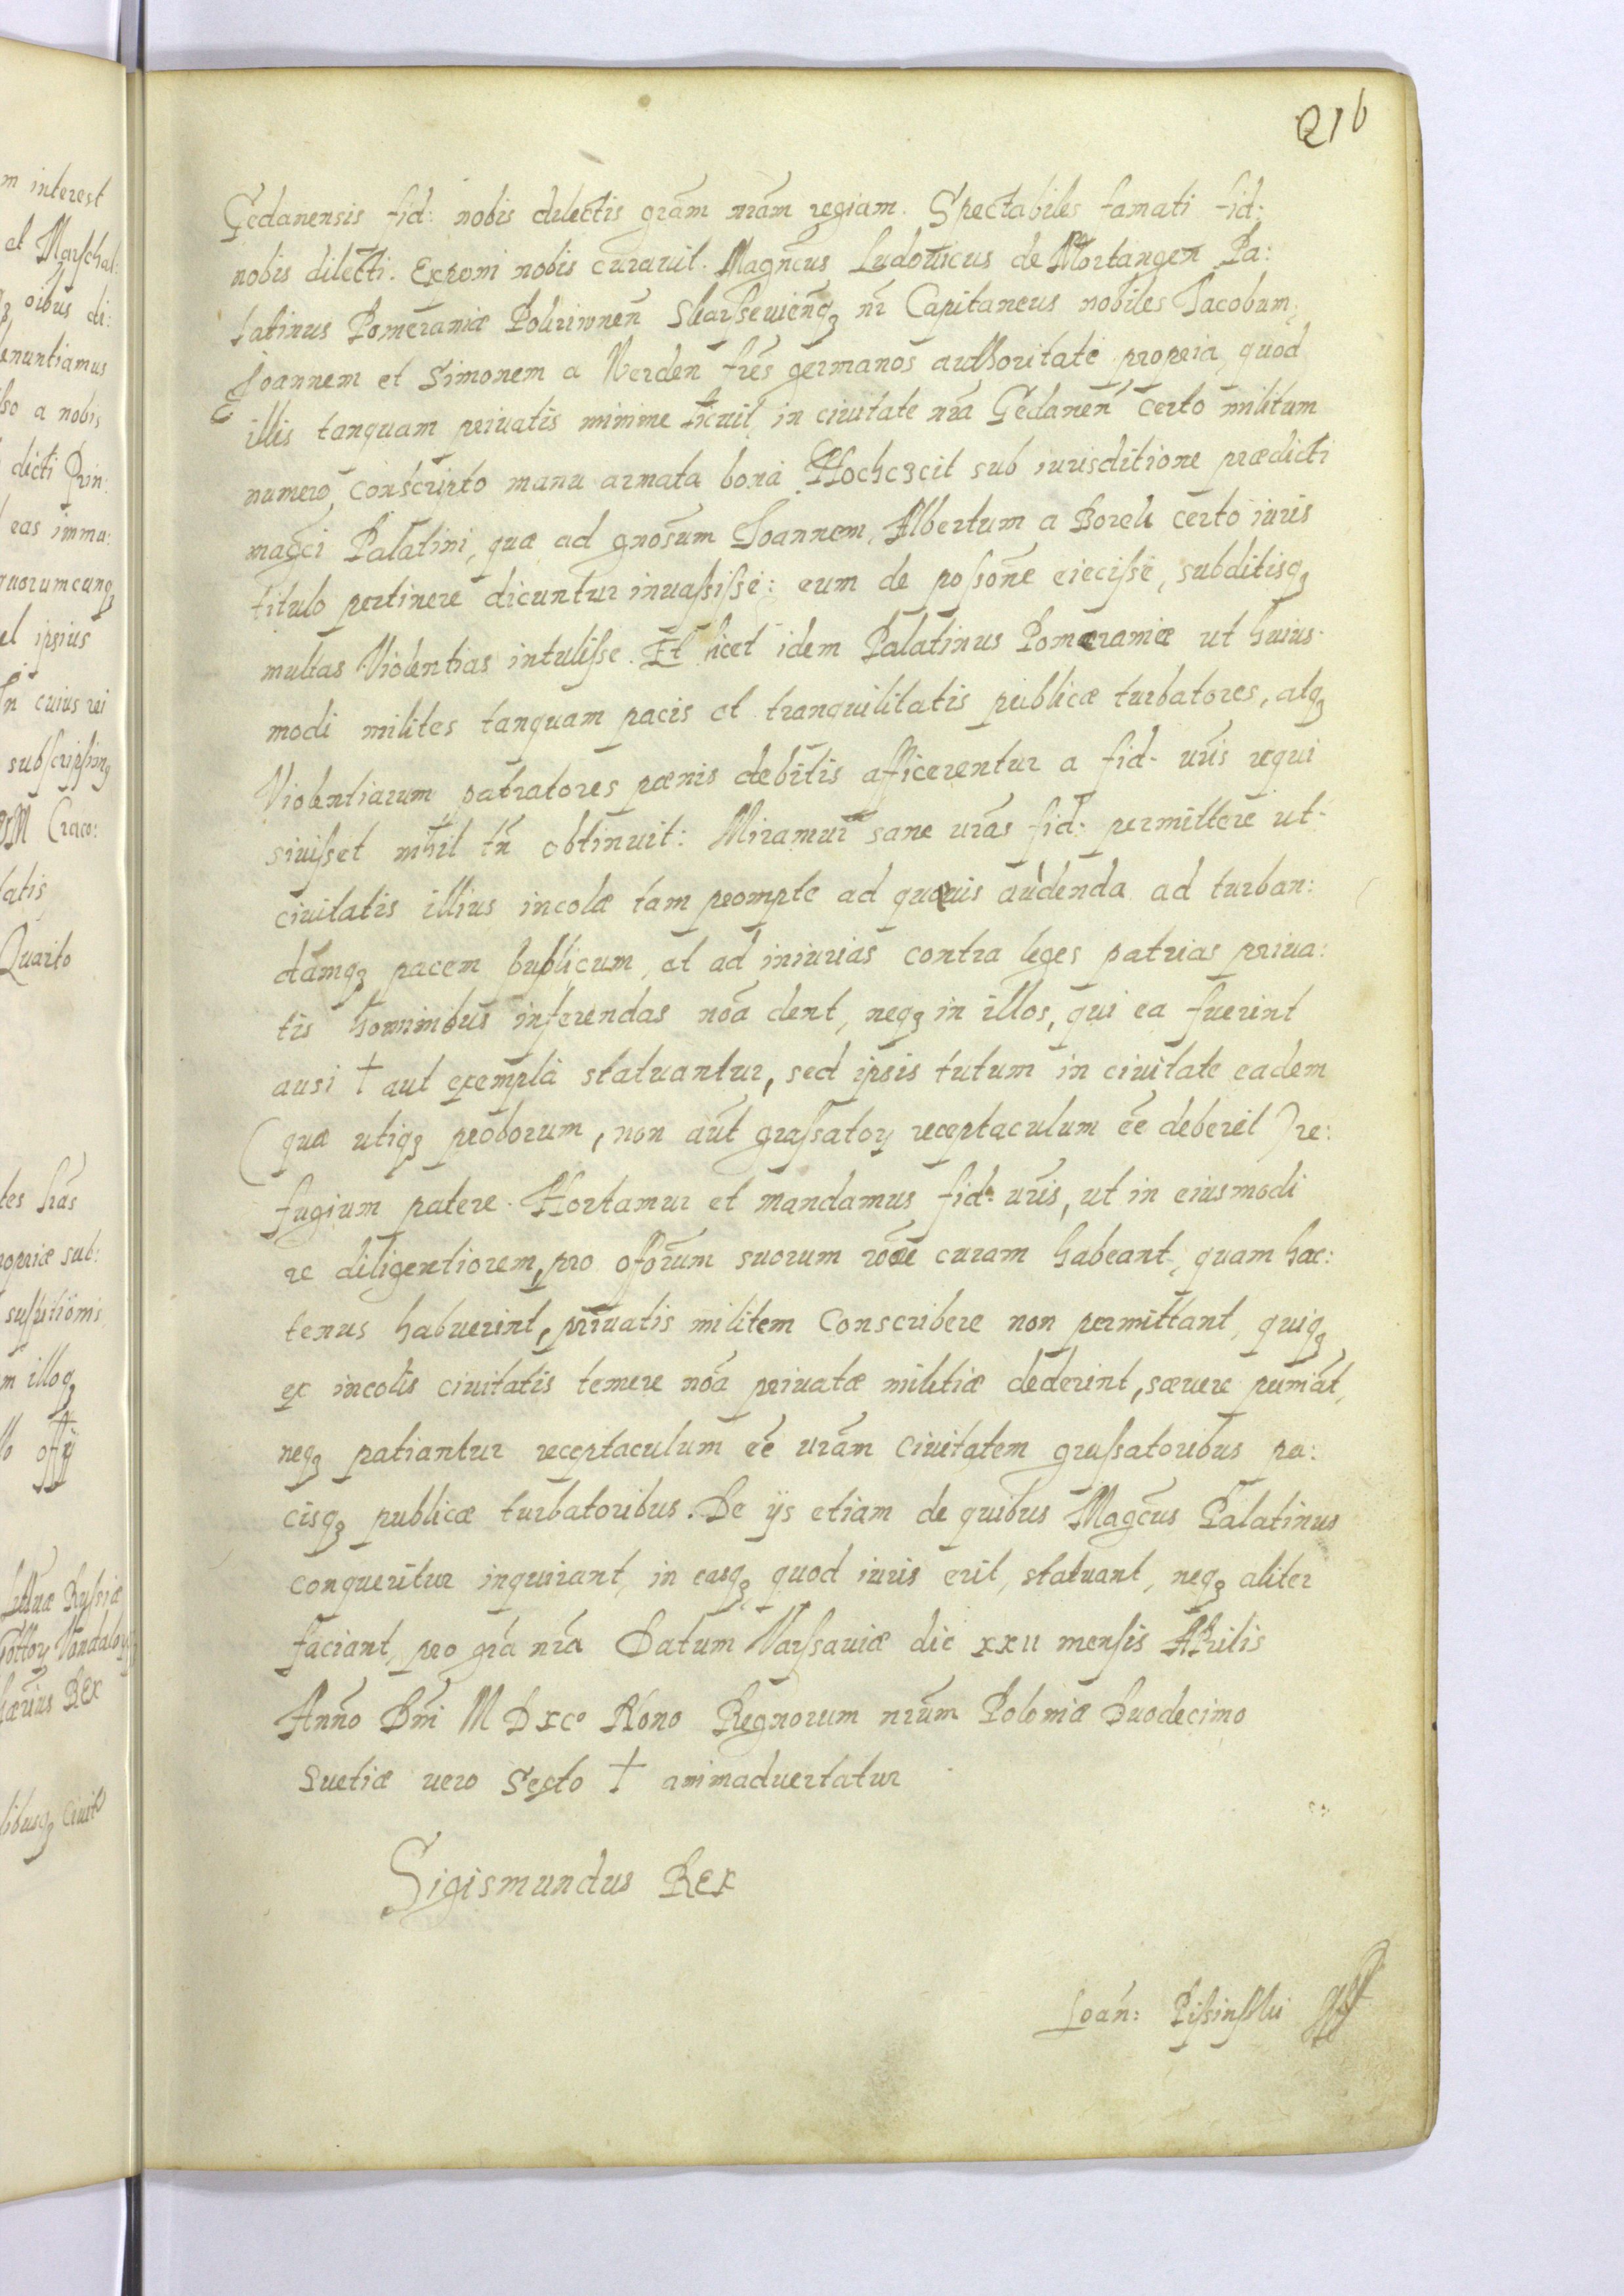 216
Gedanensis fid: nobis dilectis grãm nrãm regiam. Spectabiles famati fid:
nobis dilecti. Exponi nobis curavit. Magncus Ludouicus de Mortangen Pa:
latinus Pomeraniæ Pokrziwnen̄ Skarseuien̄q₃ nr̄ Capitaneus nobiles Jacobum,
Joannem et Simonem a Verden frēs germanos authoritate propria, quod
illis tanquam priuatis minime licuit, in ciuitate nrā Gedanen̄ certo militum
numero, conscripto manu armata bona Hochczeit sub iurisditione prædicti
magc̄i Palatini, quæ ad gnosum Joannem, Albertum a Borek certo iuris
titulo pertinere dicuntur inuassisse: eum de possōne eiecisse, subditisq₃
multas Violentias intulisse. Et licet idem Palatinus Pomeraniæ ut huius-
modi milites tanquam pacis et tranquilitatis publicæ turbatores, atq₃
Violentiarum patratores pœnis debitis afficerentur a fid. ūris requi
siuisset nihil tn̄ obtinuit: Miramur sane urās fid: permittere ut
ciuitatis illius incolæ tam prompte ad quæuis audenda ad turban:
damq₃ pacem publicum, et ad iniurias contra leges patrias priua:
tis hominibus inferendas nōa dent, neq₃ in illos, qui ea fuerint
ausi † aut exempla statuantur, sed ipsis tutum in ciuitate eadem
(quæ utiq₃ proborum, non aūt grassatoꝝ receptaculum eē deberet) re:
fugium patere. Hortamur et mandamus fid: ūris, ut in eiusmodi
re diligentiorem, pro offōrum suorum rōne curam habeant, quam hac:
tenus habuerint, priuatis militem conscribere non permittant, quiq₃
ex incolis ciuitatis temere nōa priuatæ militiæ dederint, sæuere puniāt,
neq₃ patiantur receptaculum eē urām Ciuitatem grassatoribus pa:
cisq₃ publicæ turbatoribus. De ijs etiam de quibus Magcūs Palatinus
conqueritur inquirant, in easq₃ quod iuris erit, statuant, neq₃ aliter
faciant, pro grā nrā Datum Varssauiæ die xxii mensis Aprilis
Anno Dm̄i M D xcº Nono Regnorum nrūm Poloniæ Duodecimo
Suetiæ uero Sexto † animaduertatur
Sigismundus Rex
Joan̄: